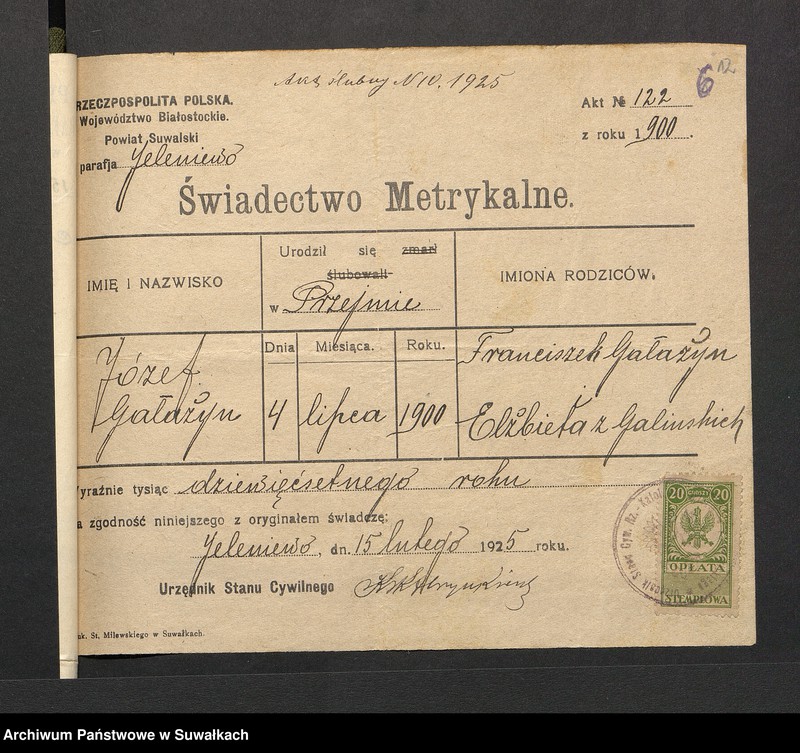 Akt ślubny N 10. 1925
6 12
RZECZPOSPOLITA POLSKA.
Województwo Białostockie.
Powiat Suwalski
parafja Jeleniewo
Akt № 122
z roku 1900.
Świadectwo Metrykalne.
IMIĘ I NAZWISKO
Urodził się zmarł
ślubowali
w Przejmie
IMIONA RODZICÓW.
Dnia Miesiąca. Roku.
Józef
Gałażyn
4 lipca 1900
Franciszek Gałażyn
i
Elżbieta z Galinskich
yraźnie tysiąc dziewięćsetnego roku
a zgodność niniejszego z oryginałem świadczę:
Jeleniewo, dn. 15 lutego 1925 roku.
Urzędnik Stanu Cywilnego
ak. St. Milewskiego w Suwałkach.
20 GROSZY 20
OPŁATA
STEMPLOWA
Stanu Cyw. Rz.-Katol
Archiwum Państwowe w Suwałkach